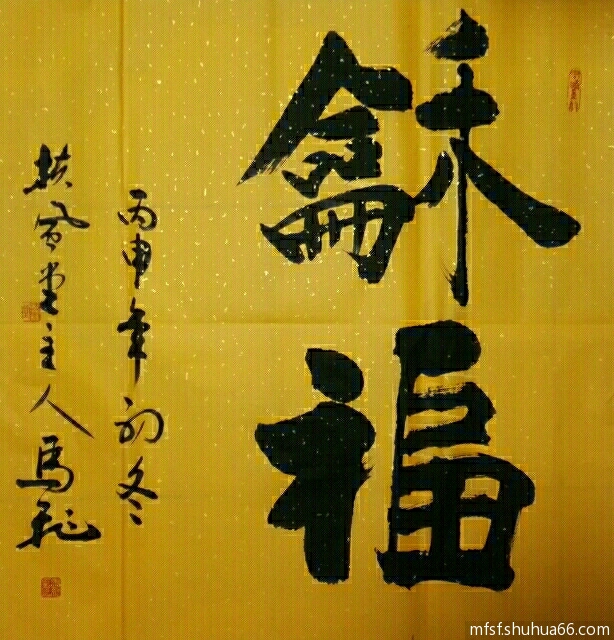 龢福
丙申年初冬
扶风堂主人马
mfsf.shuhua66.com